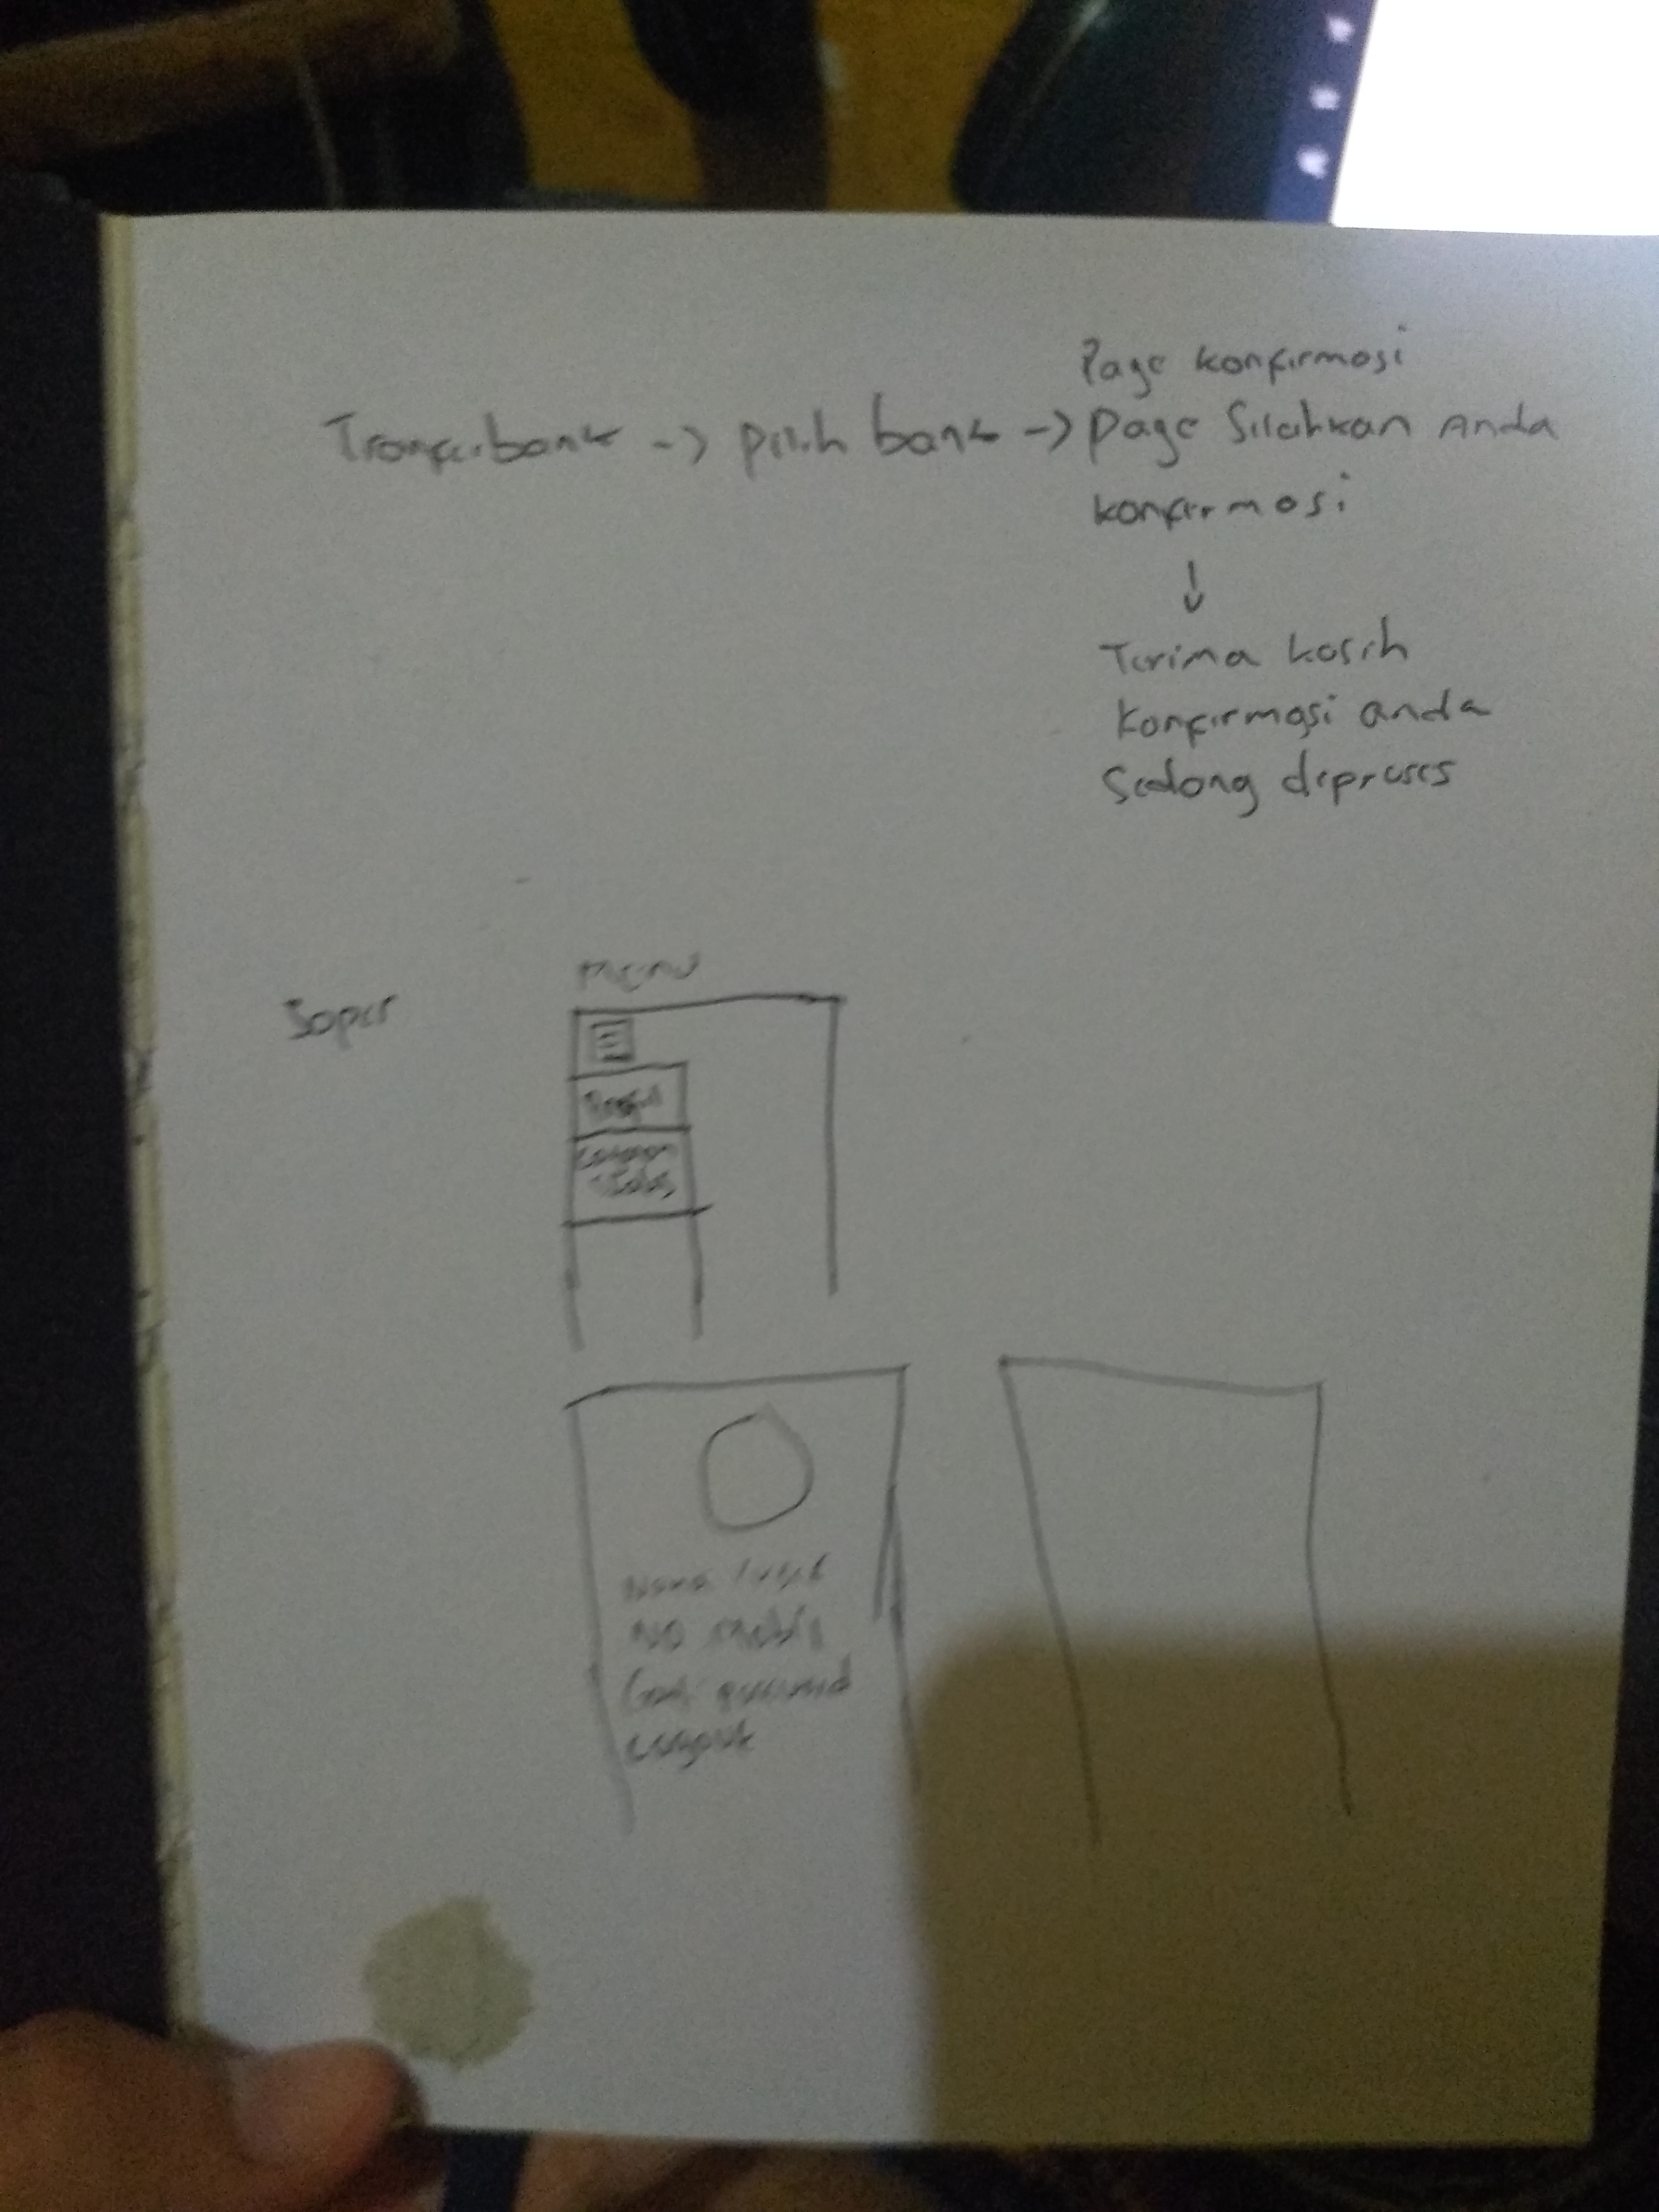 Page konfirmasi
Transfer bank -> pilih bank -> page Silahkan Anda
konfirmasi
↓
Terima kasih
Konfirmasi anda
Sedang diproses
Menu
Sopir
Profil
No mobil
Ganti password
Logout